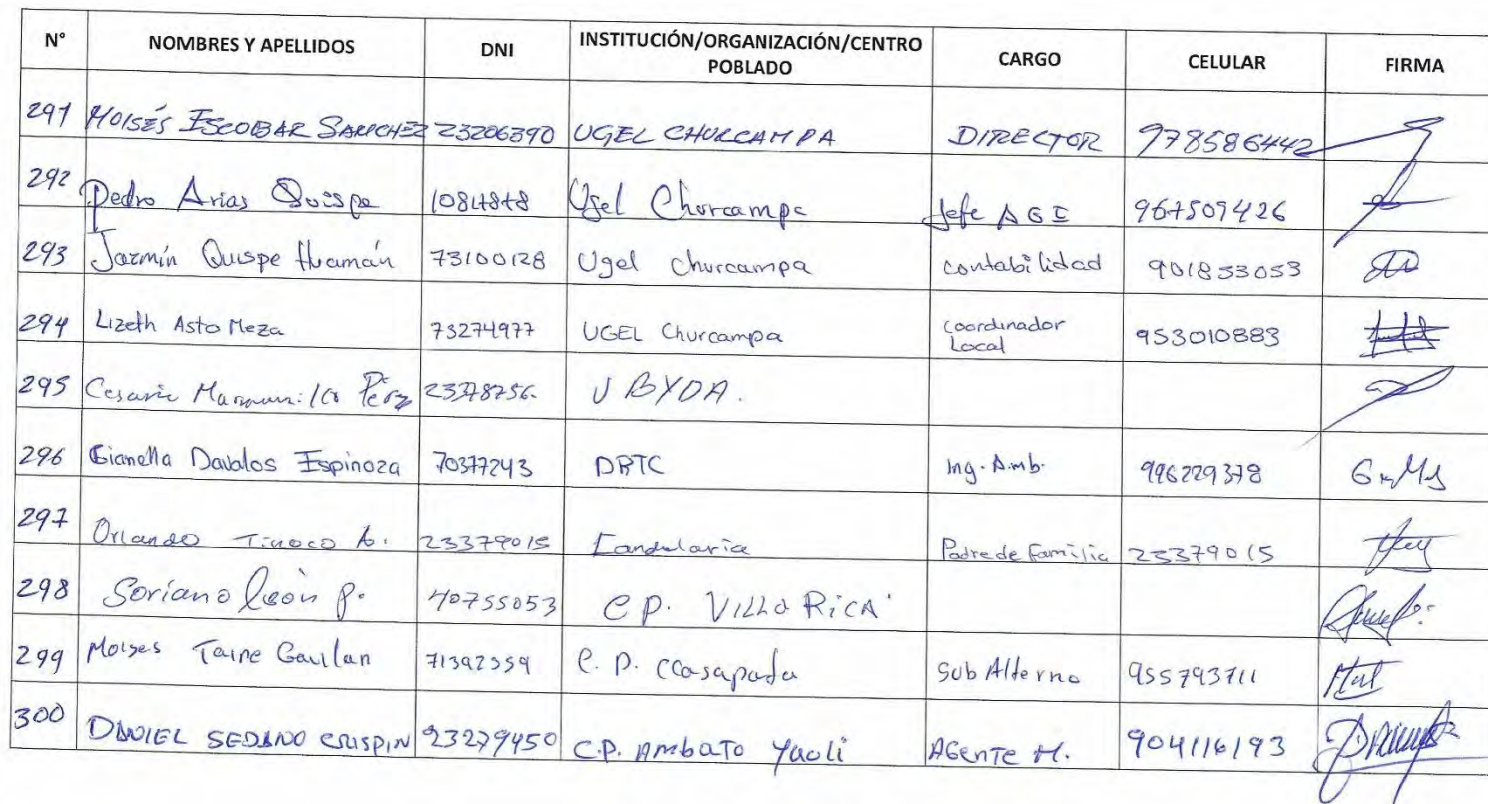 N° NOMBRES Y APELLIDOS DNI INSTITUCIÓN/ORGANIZACIÓN/CENTRO POBLADO CARGO CELULAR FIRMA
291 MOISÉS ESCOBAR SANCHEZ 23206390 UGEL CHURCAMPA DIRECTOR 978586442
292 Pedro Arias Quispe Ugel Churcampa Jefe AGI 967509426
293 Jazmín Quispe Huamán 73100128 Ugel Churcampa contabilidad 901853053
294 Lizeth Asto Meza 73274977 UGEL Churcampa Coordinador Local 953010883
295 Pérez
296 Gianella Davalos Espinoza 70377243 DRTC Ing. Amb. 996229378
297 Orlando Tinoco A. 23379015 Candelaria Padre de Familia 23379015
298 Soriano León P. 40755053 C P. VILLA RICA
299 Moises Taipe Gavilan 71392359 C. P. Ccasapata Sub Alterno 955793711
300 DANIEL SEDANO CRISPIN 23279450 C.P. AMBATO Yaoli AGENTE M. 904116193